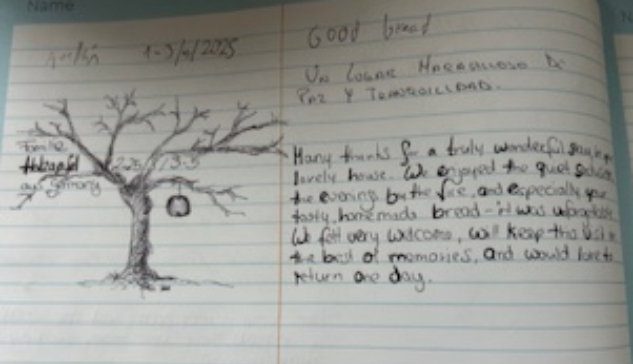 Name
1-5/4/2025
Good bread
Un lugar maravilloso de
Paz y Tranquilidad.
Familie
aus Germany
Many thanks for a truly wonderful stay in
lovely house. We enjoyed the quiet
the evenings by the fire, and especially your
tasty, homemade bread - it was
We felt very welcome, will keep this
the best of memories, and would love to
return one day.